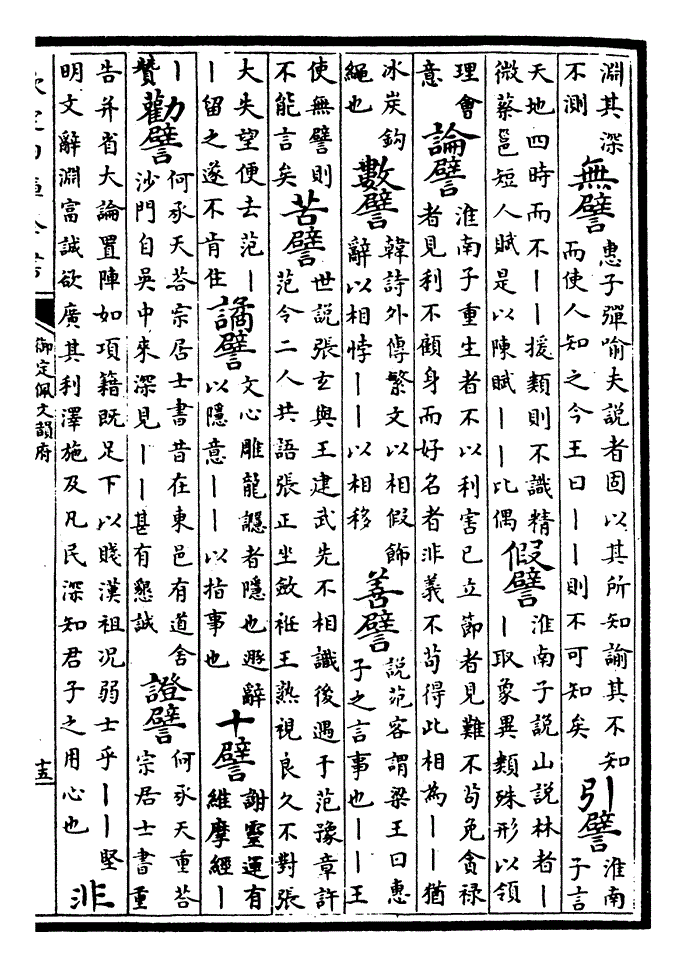 淵其深
不測
無譬
惠子彈喻夫説者固以其所知諭其不知
而使人知之今王曰丨丨則不可知矣
引譬
淮南
子言
天地四時而不丨丨援類則不識精
微蔡邕短人賦是以陳賦丨丨比偶
假譬
淮南子説山説林者丨
丨取象異類殊形以領
理會
意
論譬
淮南子重生者不以利害已立節者見難不苟免貪禄
者見利不顧身而好名者非義不苟得此相為丨丨猶
冰炭鈎
繩也
數譬
韓詩外傳繁文以相假飾
辭以相悖丨丨以相移
善譬
説范客謂梁王曰惠
子之言事也丨丨王
使無譬則
不能言矣
苦譬
世説張玄與王建武先不相識後遇于范豫章許
范令二人共語張正坐斂衽王熟視良久不對張
大失望便去范丨
丨留之遂不肯住
譎譬
文心雕龍讔者隱也遯辭
以隱意丨丨以指事也
十譬
謝靈運有
維摩經丨
丨
贊
勸譬
何承天荅宗居士書昔在東邑有道舍
沙門自吳中來深見丨丨甚有懇誠
證譬
何承天重荅
宗居士書重
告并省大論置陣如項籍既足下以賤漢祖况弱士乎丨丨堅
明文辭淵富誠欲廣其利澤施及凡民深知君子之用心也
非
御定佩文韻府
十五